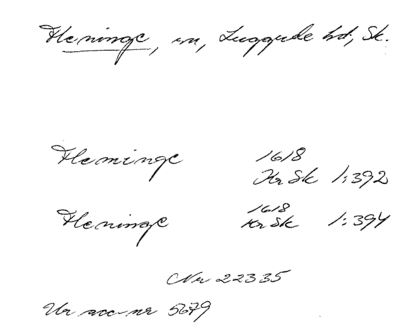 Fleninge, sn, Luggude hd, Sk.
Fleminge 1618
Kr Sk 1:392
Fleninge 1618
Kr Sk 1:394
Nr 22335
Ur acc-nr 5679